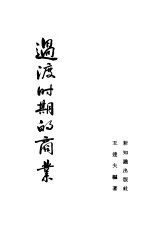 過渡时期的商業
王達夫編著
新知識出版社